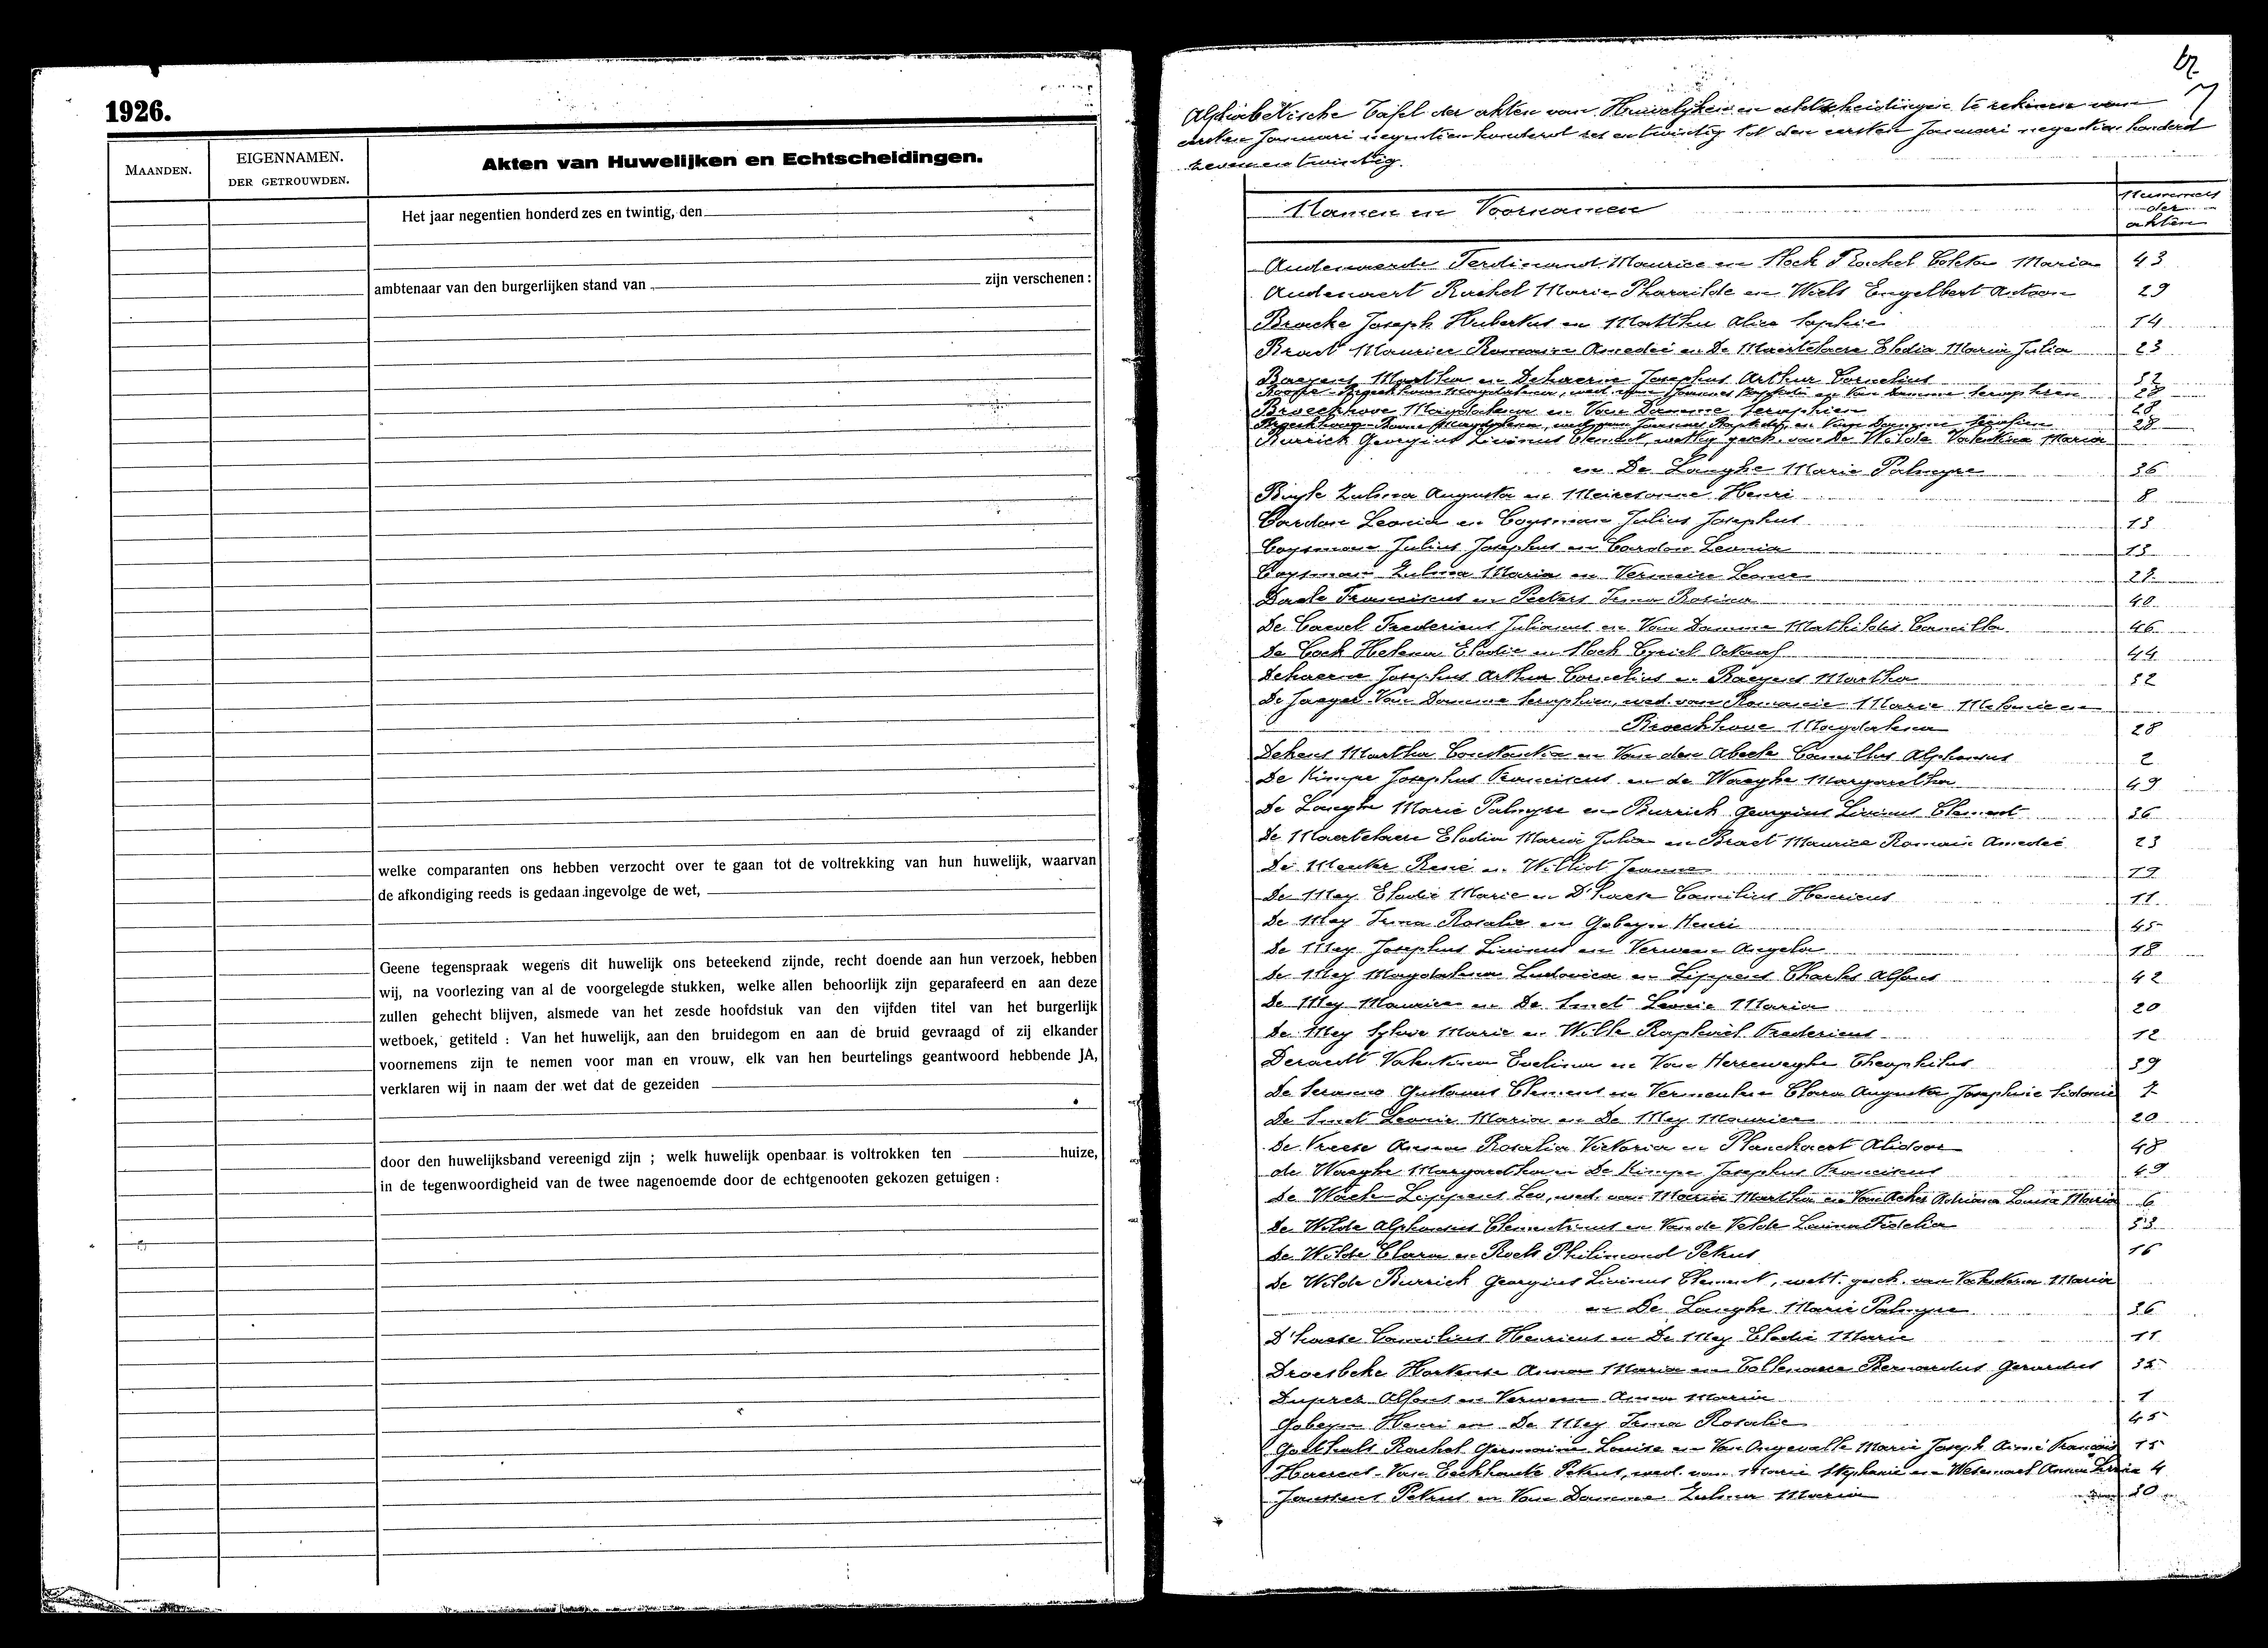 1926.
MAANDEN.
EIGENNAMEN.
DER GETROUWDEN.
Akten van Huwelijken en Echtscheidingen.
Het jaar negentien honderd zes en twintig, den
ambtenaar van den burgerlijken stand van zijn verschenen :
welke comparanten ons hebben verzocht over te gaan tot de voltrekking van hun huwelijk, waarvan
de afkondiging reeds is gedaan ingevolge de wet,
Geene tegenspraak wegens dit huwelijk ons beteekend zijnde, recht doende aan hun verzoek, hebben
wij, na voorlezing van al de voorgelegde stukken, welke allen behoorlijk zijn geparafeerd en aan deze
zullen gehecht blijven, alsmede van het zesde hoofdstuk van den vijfden titel van het burgerlijk
wetboek, getiteld : Van het huwelijk, aan den bruidegom en aan de bruid gevraagd of zij elkander
voornemens zijn te nemen voor man en vrouw, elk van hen beurtelings geantwoord hebbende JA,
verklaren wij in naam der wet dat de gezeiden
door den huwelijksband vereenigd zijn ; welk huwelijk openbaar is voltrokken ten huize,
in de tegenwoordigheid van de twee nagenoemde door de echtgenooten gekozen getuigen :
Alphabetische Tafel der akten van Huwelijken en echtscheidingen te rekenen van
eersten Januari negentien honderd zes en twintig tot den eersten Januari negentien honderd
zeven en twintig.
Namen en Voornamen
Nummers
der
akten
Audenaerde Ferdinand Maurice en Hoek Rachel Coleta Maria 43
Audenaert Rachel Marie Pharailde en Wiels Engelbert Antoon 29
Bracke Joseph Hubertus en Matthu Alice Sophie 14
Braet Maurice Romain Amedei en De Maertelaere Elodia Maria Julia 23
Baeyens Martha en Dehaerne Josephus Arthur Cornelius 32
Broeckhove Magdalena en Van Damme Seraphien 28
Burrick Georgius Livinus Clement, wettig gesch. van De Wilde Valentina Maria
en De Langhe Marie Palmyre 36
Buyle Zulma Augusta en Meiresonne Henri 8
Cardon Leonia en Coysman Julius Josephus 13
Coysman Julius Josephus en Cardon Leonia 13
Coysman Zulma Maria en Vermeire Leonce
Daele Franciscus en Peeters Irma Rosina 40
De Cauwel Fredericus Julianus en Van Damme Mathildis Camilla 46
De Cock Helena Elodie en Hoek Cyriel Octaaf 44
Dehaerne Josephus Arthur Cornelius en Baeyens Martha 32
De Jaeger Van Damme Seraphien, wed. van Romanie Marie Melanie en
Broeckhove Magdalena 28
Dekens Martha Constantia en Van den Abeele Camillus Alphonsus 2
De Kimpe Josephus Franciscus en de Waeghe Margaretha 49
De Langhe Marie Palmyre en Burrick Georgius Livinus Clement 36
De Maertelaere Elodia Maria Julia en Braet Maurice Romain Amedei 23
De Meuter René en Williot Jeanne 19
De Mey Elodie Marie en D'haese Camilius Henricus 11
De Mey Irma Rosalie en Gobeyn Henri 45
De Mey Josephus Livinus en Verween Angela 18
De Mey Magdalena Ludovica en Lippens Charles Alfons 42
De Mey Maurice en De Smet Leonie Maria 20
De Mey Sylvie Marie en Wille Raphaël Fredericus 12
Deraedt Valentina Evelina en Van Herreweghe Theophilus 39
De Seranno Gustavus Clement en Vermeulen Clara Augusta Josephine Sidonie 7
De Smet Leonie Maria en De Mey Maurice 20
De Vreese Anna Rosalia Victoria en Planckaert Alidoor 48
de Waeghe Margaretha en De Kimpe Josephus Franciscus 49
De Waele Lippens Leo, wed. van Maria Martha en Van Acker Adriana Louisa Maria 6
De Wilde Alphonsus Clementinus en Van de Velde Lavina Fidelia 33
De Wilde Clara en Roels Philimond Petrus 16
De Wilde Burrick Georgius Livinus Clement, wett. gesch. van Valentina Maria
en De Langhe Marie Palmyre 36
D'haese Camilius Henricus en De Mey Elodie Marie 11
Droesbeke Hortense Anna Maria en Collenaere Bernardus Gerardus 35
Duprez Alfons en Verween Anna Maria 1
Gobeyn Henri en De Mey Irma Rosalie 45
Goethals Rachel Germaine Louise en Van Ongevalle Marie Joseph Aimé François 15
Haerens Van Eeckhoute Petrus, wed. van Marie Stephanie en Weternaet Anna Livia 4
Janssens Petrus en Van Damme Zulma Maria 30